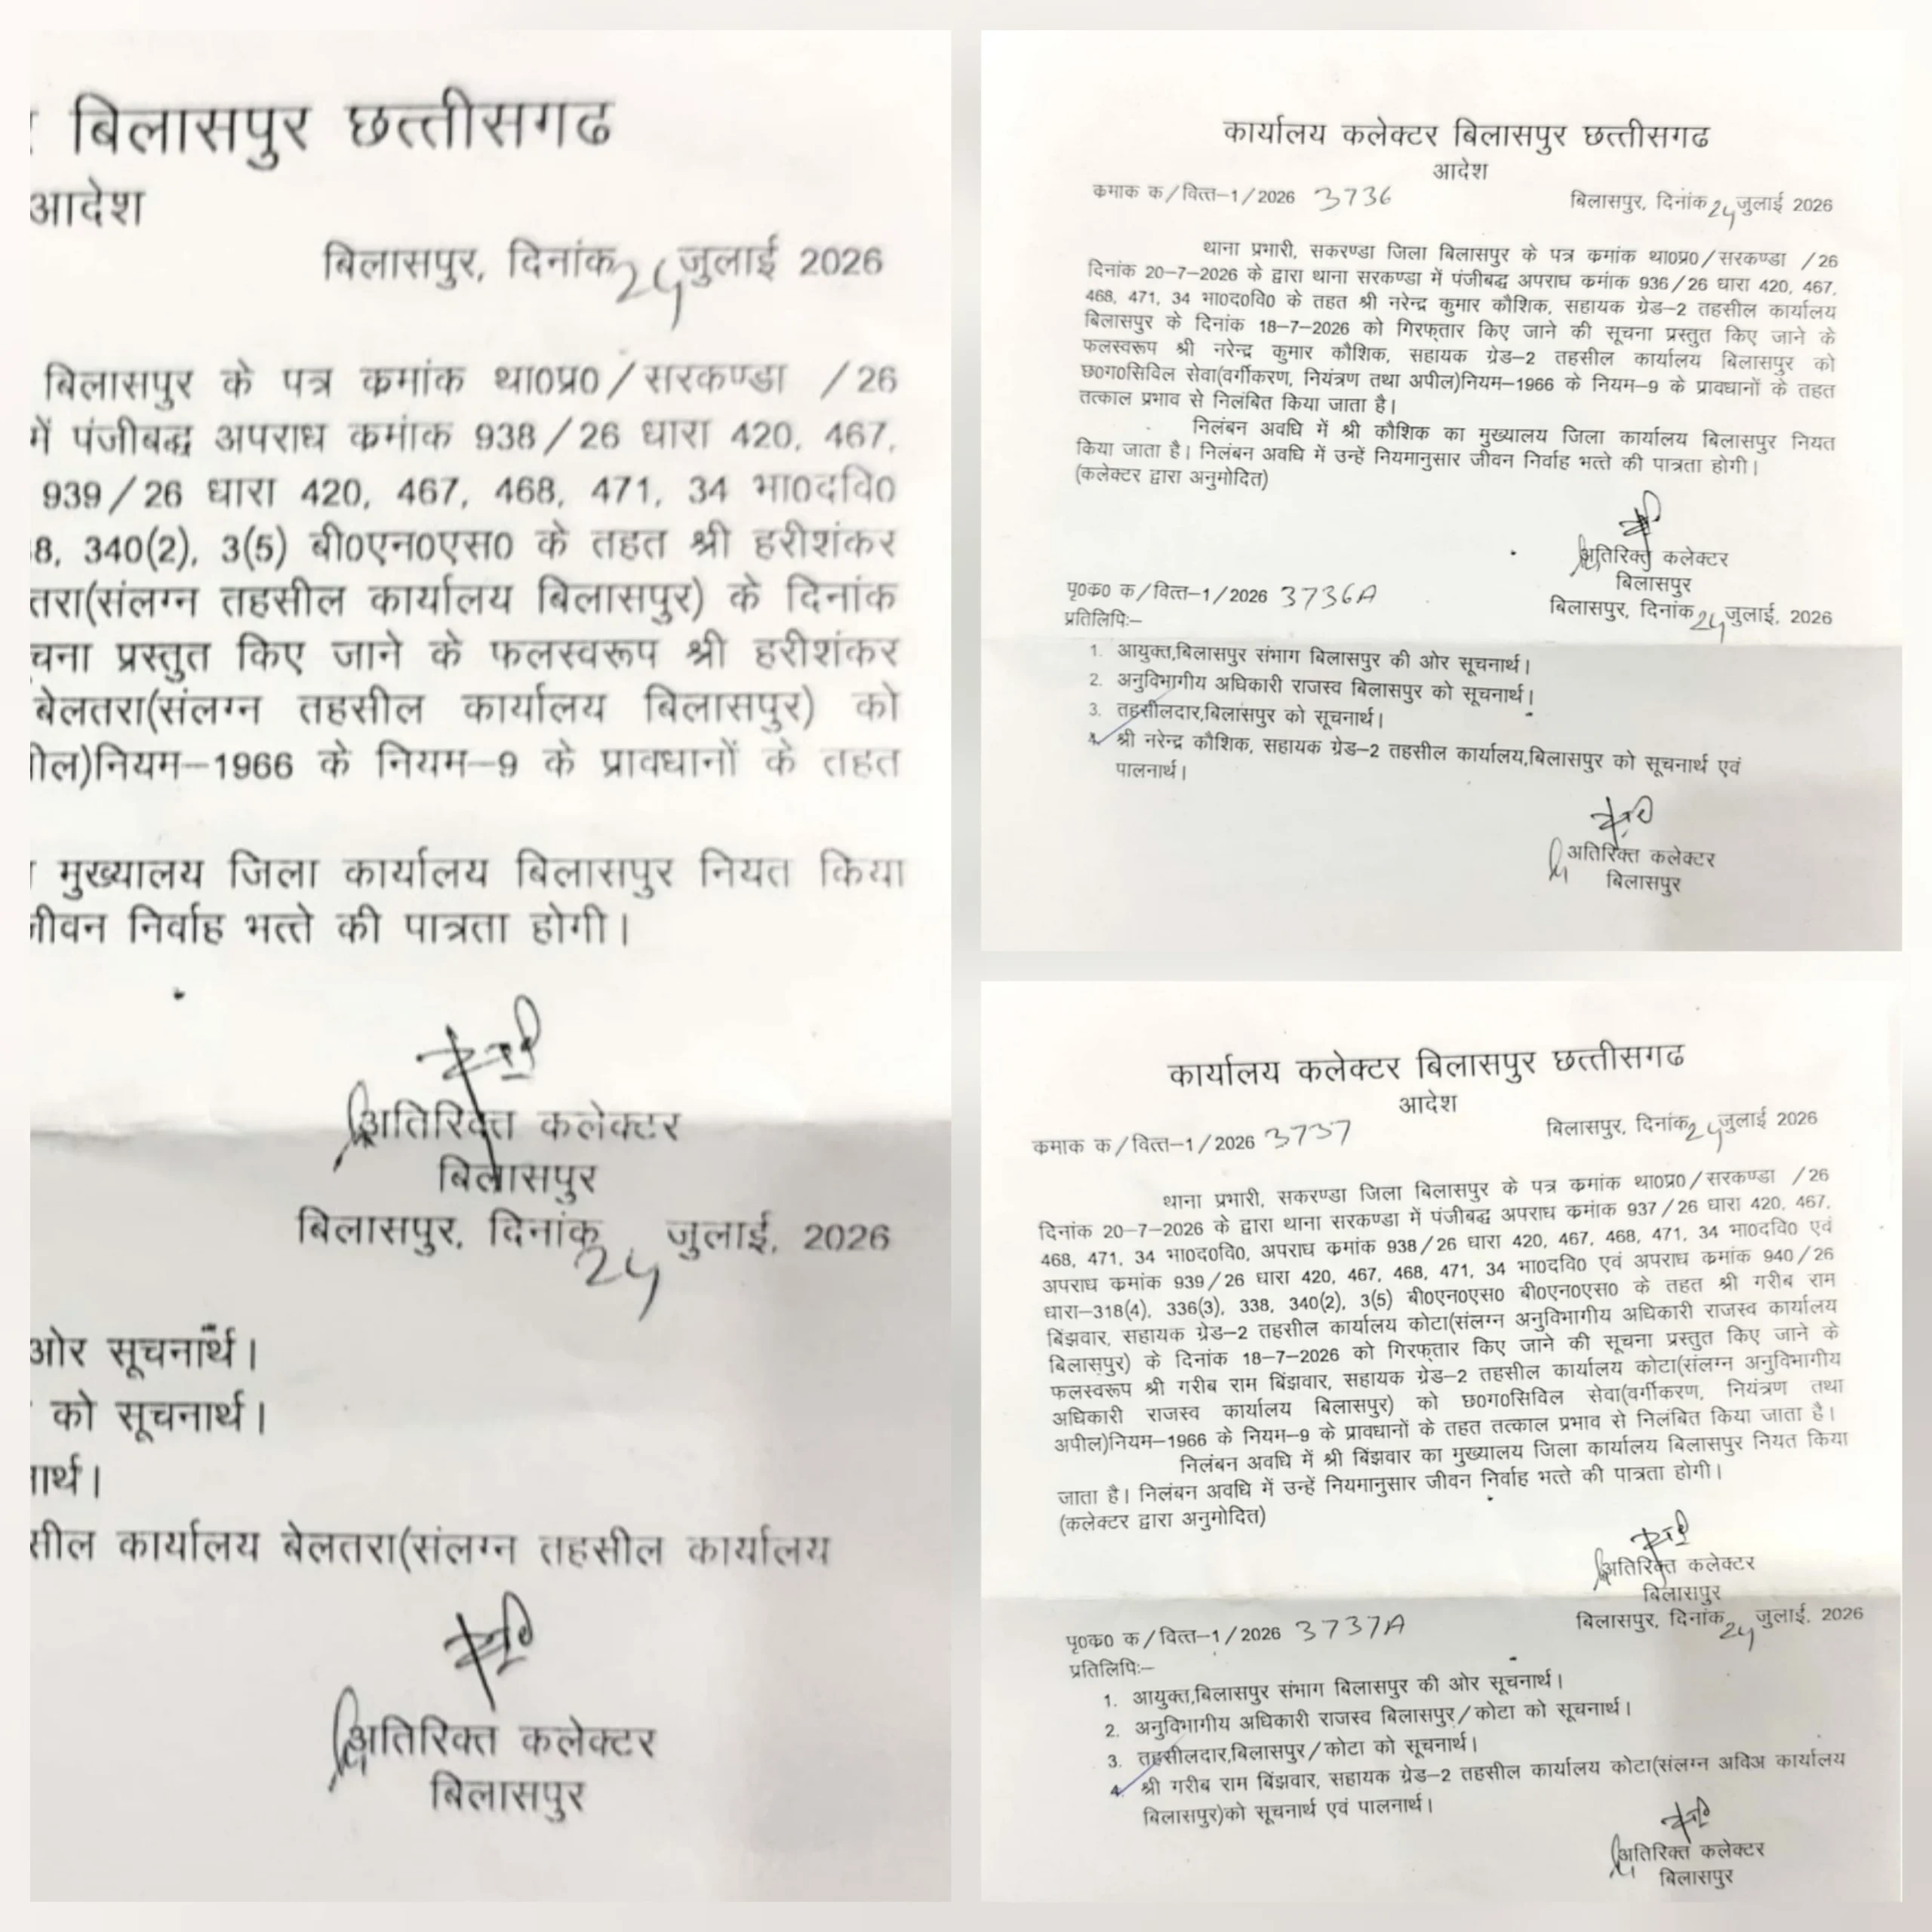 बिलासपुर छत्तीसगढ
आदेश
बिलासपुर, दिनांक 24 जुलाई 2026
बिलासपुर के पत्र कमांक था0प्र0/सरकण्डा /26
में पंजीबद्ध अपराध कमांक 938/26 धारा 420, 467,
939/26 धारा 420, 467, 468, 471, 34 भा0दवि0
8, 340(2), 3(5) बी0एन0एस0 के तहत श्री हरीशंकर
तरा(संलग्न तहसील कार्यालय बिलासपुर) के दिनांक
चना प्रस्तुत किए जाने के फलस्वरूप श्री हरीशंकर
बेलतरा(संलग्न तहसील कार्यालय बिलासपुर) को
ील)नियम–1966 के नियम–9 के प्रावधानों के तहत
मुख्यालय जिला कार्यालय बिलासपुर नियत किया
जीवन निर्वाह भत्ते की पात्रता होगी।
अतिरिक्त कलेक्टर
बिलासपुर
बिलासपुर, दिनांक 24 जुलाई, 2026
ओर सूचनार्थ।
को सूचनार्थ।
नार्थ।
सील कार्यालय बेलतरा(संलग्न तहसील कार्यालय
अतिरिक्त कलेक्टर
बिलासपुर
कार्यालय कलेक्टर बिलासपुर छत्तीसगढ
आदेश
कमाक क/वित्त–1/2026 3736
बिलासपुर, दिनांक 24 जुलाई 2026
थाना प्रभारी, सकरण्डा जिला बिलासपुर के पत्र कमांक था0प्र0/सरकण्डा /26
दिनांक 20-7-2026 के द्वारा थाना सरकण्डा में पंजीबद्ध अपराध कमांक 936/26 धारा 420, 467,
468, 471, 34 भा0द0वि0 के तहत श्री नरेन्द्र कुमार कौशिक, सहायक ग्रेड–2 तहसील कार्यालय
बिलासपुर के दिनांक 18-7-2026 को गिरफ्तार किए जाने की सूचना प्रस्तुत किए जाने के
फलस्वरूप श्री नरेन्द्र कुमार कौशिक, सहायक ग्रेड–2 तहसील कार्यालय बिलासपुर को
छ0ग0सिविल सेवा(वर्गीकरण, नियंत्रण तथा अपील)नियम–1966 के नियम–9 के प्रावधानों के तहत
तत्काल प्रभाव से निलंबित किया जाता है।
निलंबन अवधि में श्री कौशिक का मुख्यालय जिला कार्यालय बिलासपुर नियत
किया जाता है। निलंबन अवधि में उन्हें नियमानुसार जीवन निर्वाह भत्ते की पात्रता होगी।
(कलेक्टर द्वारा अनुमोदित)
अतिरिक्त कलेक्टर
बिलासपुर
पृ0क0 क/वित्त–1/2026 3736A
बिलासपुर, दिनांक 24 जुलाई, 2026
प्रतिलिपिः–
1. आयुक्त,बिलासपुर संभाग बिलासपुर की ओर सूचनार्थ।
2. अनुविभागीय अधिकारी राजस्व बिलासपुर को सूचनार्थ।
3. तहसीलदार,बिलासपुर को सूचनार्थ।
4. श्री नरेन्द्र कौशिक, सहायक ग्रेड–2 तहसील कार्यालय,बिलासपुर को सूचनार्थ एवं
पालनार्थ।
अतिरिक्त कलेक्टर
बिलासपुर
कार्यालय कलेक्टर बिलासपुर छत्तीसगढ
आदेश
कमाक क/वित्त–1/2026 3737
बिलासपुर, दिनांक 24 जुलाई 2026
थाना प्रभारी, सकरण्डा जिला बिलासपुर के पत्र कमांक था0प्र0/सरकण्डा /26
दिनांक 20-7-2026 के द्वारा थाना सरकण्डा में पंजीबद्ध अपराध कमांक 937/26 धारा 420, 467,
468, 471, 34 भा0द0वि0, अपराध कमांक 938/26 धारा 420, 467, 468, 471, 34 भा0दवि0 एवं
अपराध कमांक 939/26 धारा 420, 467, 468, 471, 34 भा0दवि0 एवं अपराध कमांक 940/26
धारा–318(4), 336(3), 338, 340(2), 3(5) बी0एन0एस0 बी0एन0एस0 के तहत श्री गरीब राम
बिंझवार, सहायक ग्रेड–2 तहसील कार्यालय कोटा(संलग्न अनुविभागीय अधिकारी राजस्व कार्यालय
बिलासपुर) के दिनांक 18-7-2026 को गिरफ्तार किए जाने की सूचना प्रस्तुत किए जाने के
फलस्वरूप श्री गरीब राम बिंझवार, सहायक ग्रेड–2 तहसील कार्यालय कोटा(संलग्न अनुविभागीय
अधिकारी राजस्व कार्यालय बिलासपुर) को छ0ग0सिविल सेवा(वर्गीकरण, नियंत्रण तथा
अपील)नियम–1966 के नियम–9 के प्रावधानों के तहत तत्काल प्रभाव से निलंबित किया जाता है।
निलंबन अवधि में श्री बिंझवार का मुख्यालय जिला कार्यालय बिलासपुर नियत किया
जाता है। निलंबन अवधि में उन्हें नियमानुसार जीवन निर्वाह भत्ते की पात्रता होगी।
(कलेक्टर द्वारा अनुमोदित)
अतिरिक्त कलेक्टर
बिलासपुर
पृ0क0 क/वित्त–1/2026 3737A
बिलासपुर, दिनांक 24 जुलाई, 2026
प्रतिलिपिः–
1. आयुक्त,बिलासपुर संभाग बिलासपुर की ओर सूचनार्थ।
2. अनुविभागीय अधिकारी राजस्व बिलासपुर/कोटा को सूचनार्थ।
3. तहसीलदार,बिलासपुर/कोटा को सूचनार्थ।
4. श्री गरीब राम बिंझवार, सहायक ग्रेड–2 तहसील कार्यालय कोटा(संलग्न अविअ कार्यालय
बिलासपुर)को सूचनार्थ एवं पालनार्थ।
अतिरिक्त कलेक्टर
बिलासपुर